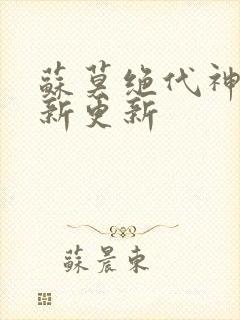 蘇莫絶代神
新更新
蘇晨東